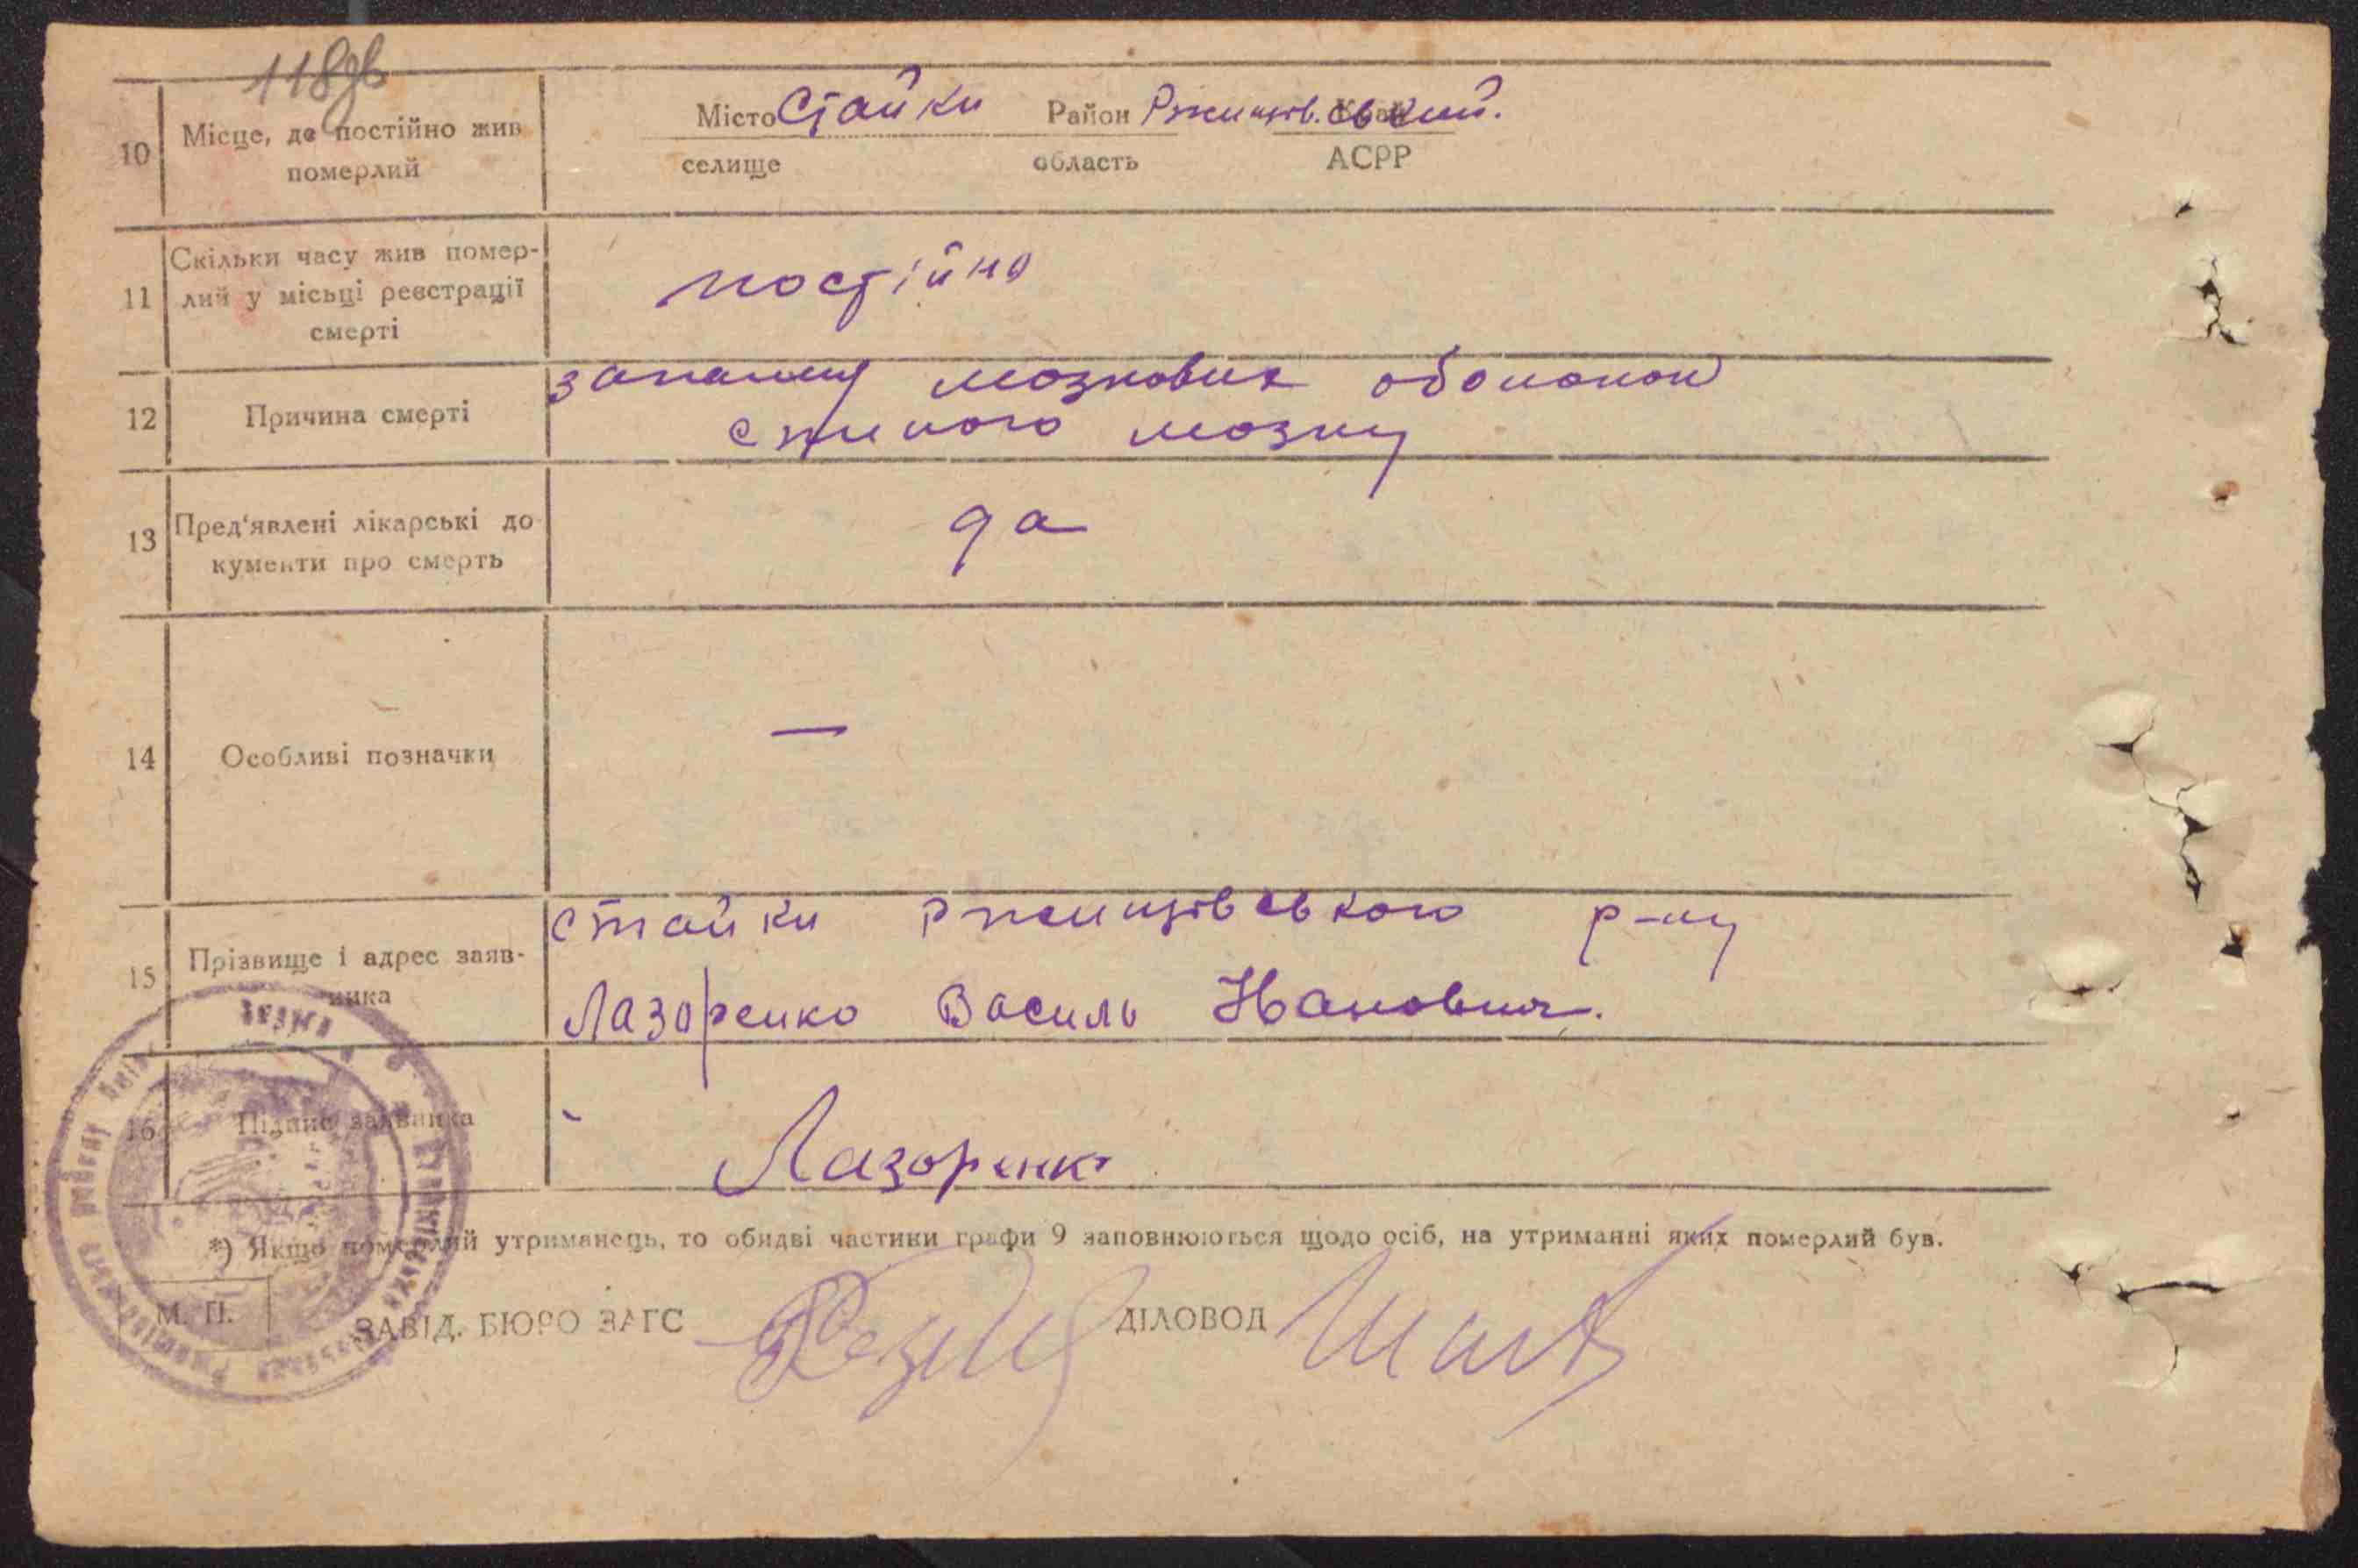 118зв
10 Місце, де постійно жив померлий
Місто Стайки Район Ржищів.ський. Край
селище область АСРР
11 Скільки часу жив помер-
лий у місьці реєстрації
смерті
постійно
12 Причина смерті
запаление мозкових оболонок
спиного мозку
13 Пред'явлені лікарські до-
кументи про смерть
да
14 Особливі позначки
—
15 Прізвище і адрес заяв-
ника
Стайки Ржищівського р-ну
Лазоренко Василь Иванович.
16 Підпис заявника
Лазоренко
*) Якщо померлий утриманець, то обидві частини графи 9 заповнюються щодо осіб, на утриманні яких померлий був.
М. П.
ЗАВІД. БЮРО ЗАГС
ДІЛОВОД